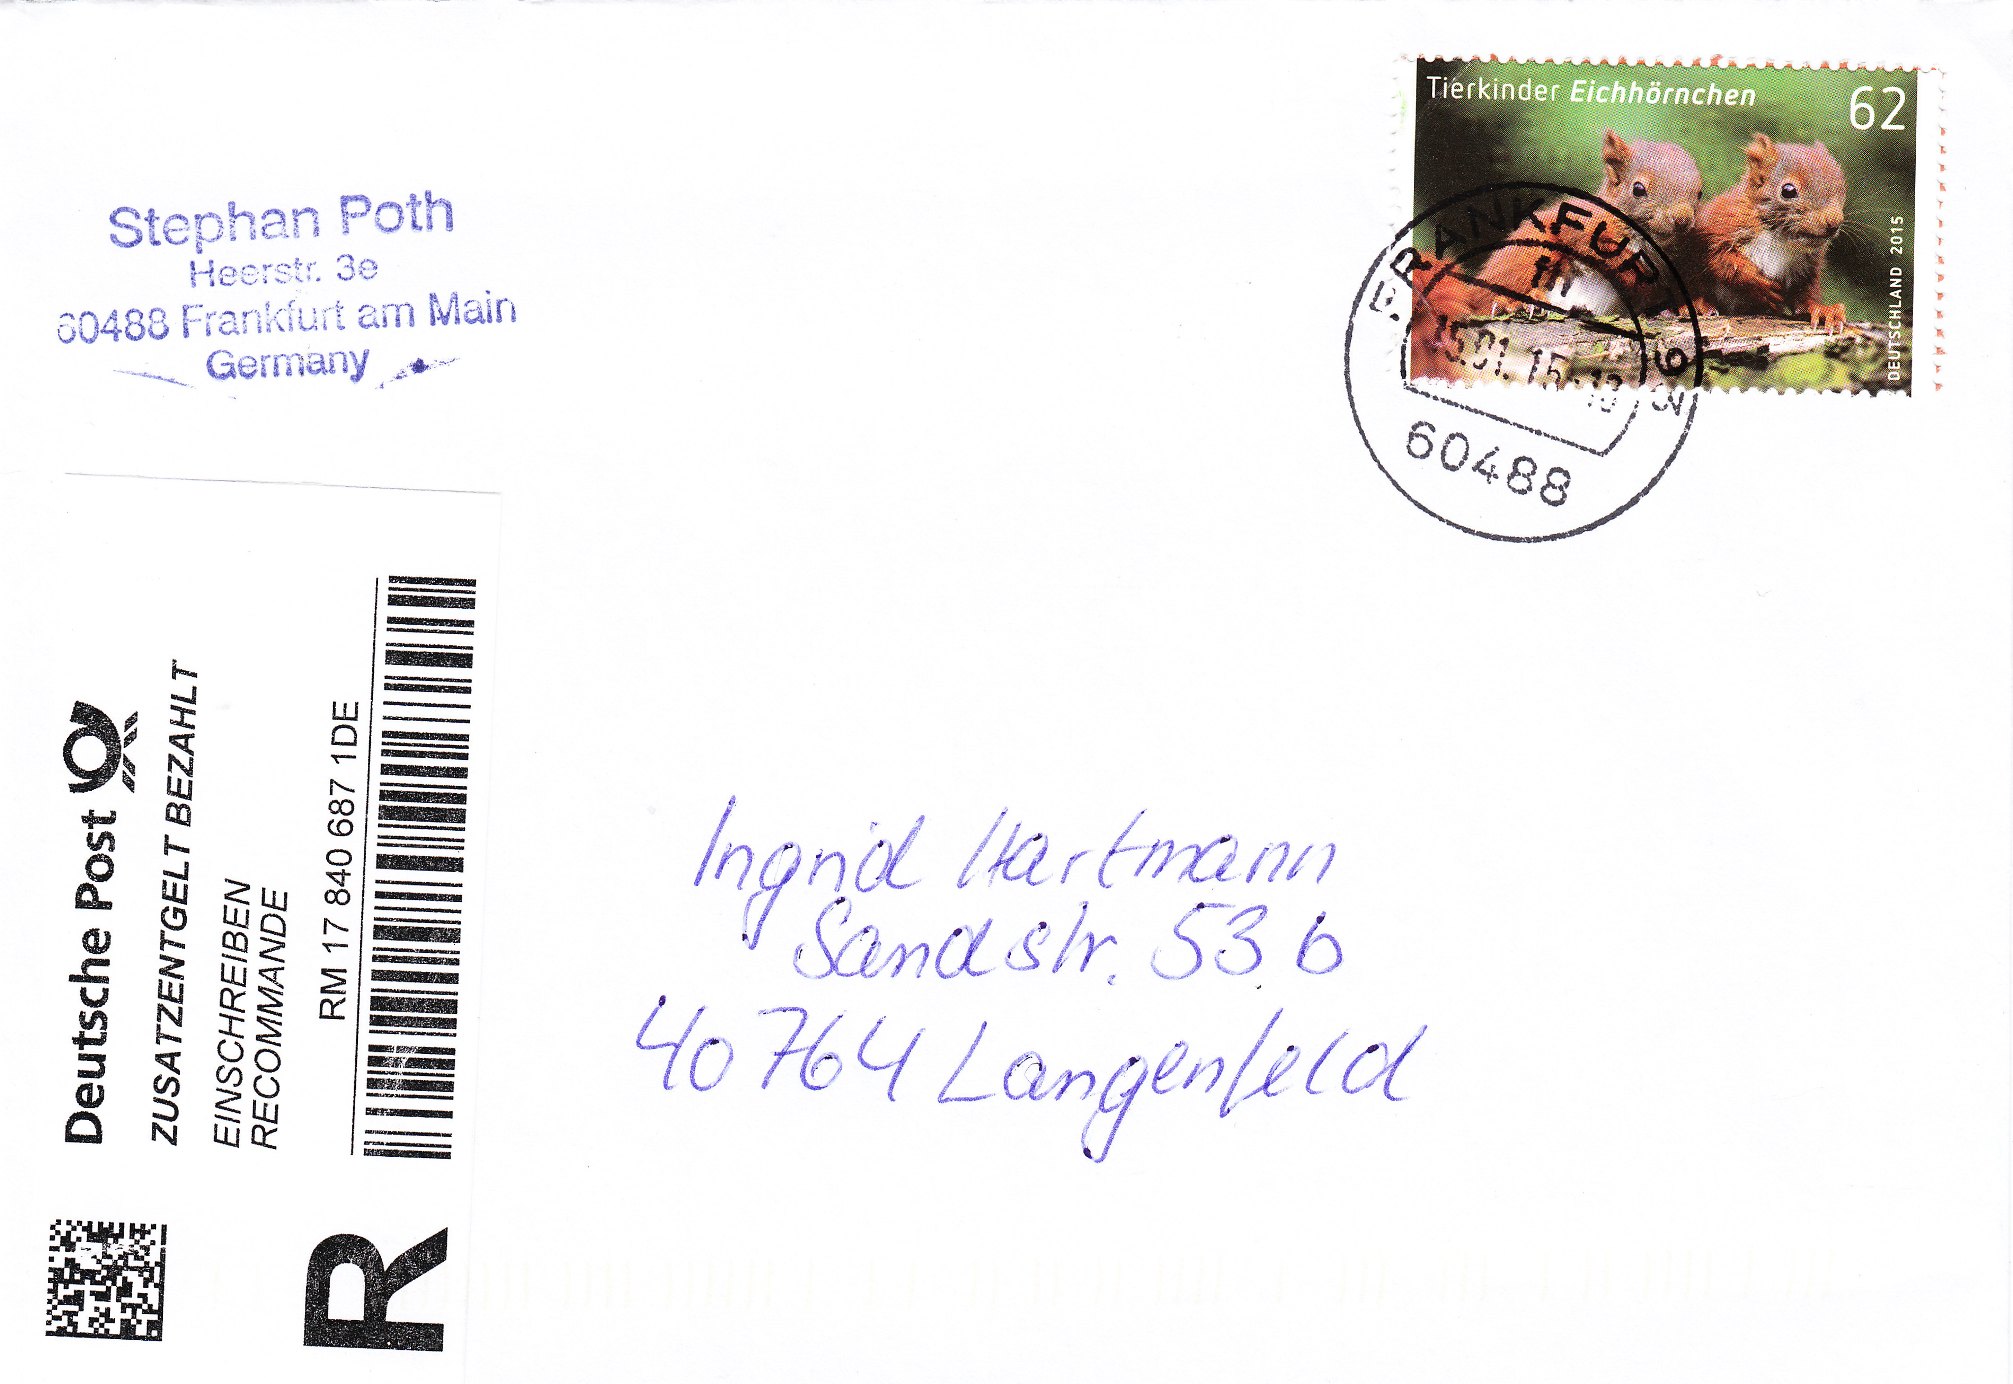 Tierkinder Eichhörnchen
62
DEUTSCHLAND 2015
Stephan Poth
Heerstr. 3e
60488 Frankfurt am Main
Germany
FRANKFURT
60488
Deutsche Post
ZUSATZENTGELT BEZAHLT
EINSCHREIBEN
RECOMMANDE
RM 17 840 687 1DE
R
Ingrid Hartmann
Sandstr. 53 b
40764 Langenfeld